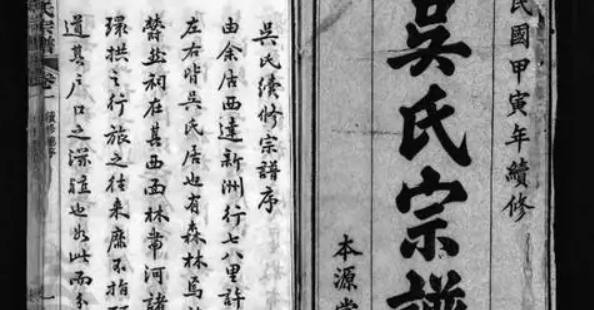 民國甲寅年續修
吳氏宗譜
本源堂
吳氏續修宗譜序
由余居西達新洲行七八里許
左右皆吳氏居也有森林焉
欝盐祠在其西西林常河諸
環拱之行旅之往来靡不指
道其戶口之深延也如此而
氏宗譜
卷一
續修譜序